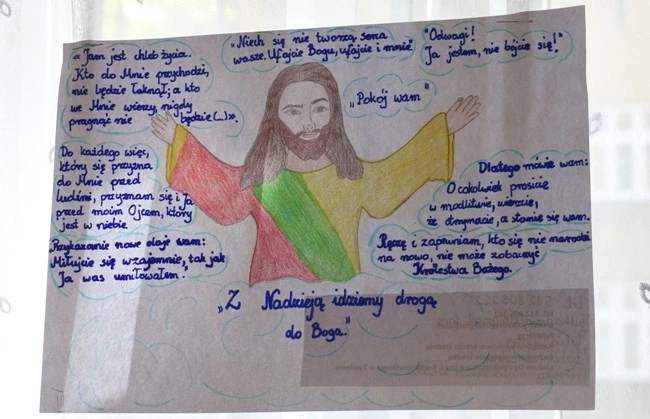 « Jam jest chleb życia.
Kto do Mnie przychodzi,
nie będzie łaknął; a kto
we Mnie wierzy, nigdy
pragnąć nie będzie (...)».
„Niech się nie tworzą serca
wasze. Ufajcie Bogu, ufajcie i mnie"
"Odwagi!
Ja jestem, nie bójcie się!"
„Pokój wam"
Do każdego więc,
który się przyzna
do Mnie przed
ludźmi, przyznam się i Ja
przed moim Ojcem, który
jest w niebie.
Przykazanie nowe daję wam:
Miłujcie się wzajemnie, tak jak
Ja was umiłowałem.
Dlatego mówię wam:
O cokolwiek prosicie
w modlitwie, wierzcie,
że otrzymacie, a stanie się wam.
Ręczę i zapewniam, kto się nie narodzi
na nowo, nie może zobaczyć
Królestwa Bożego.
„Z Nadzieją idziemy drogą
do Boga."